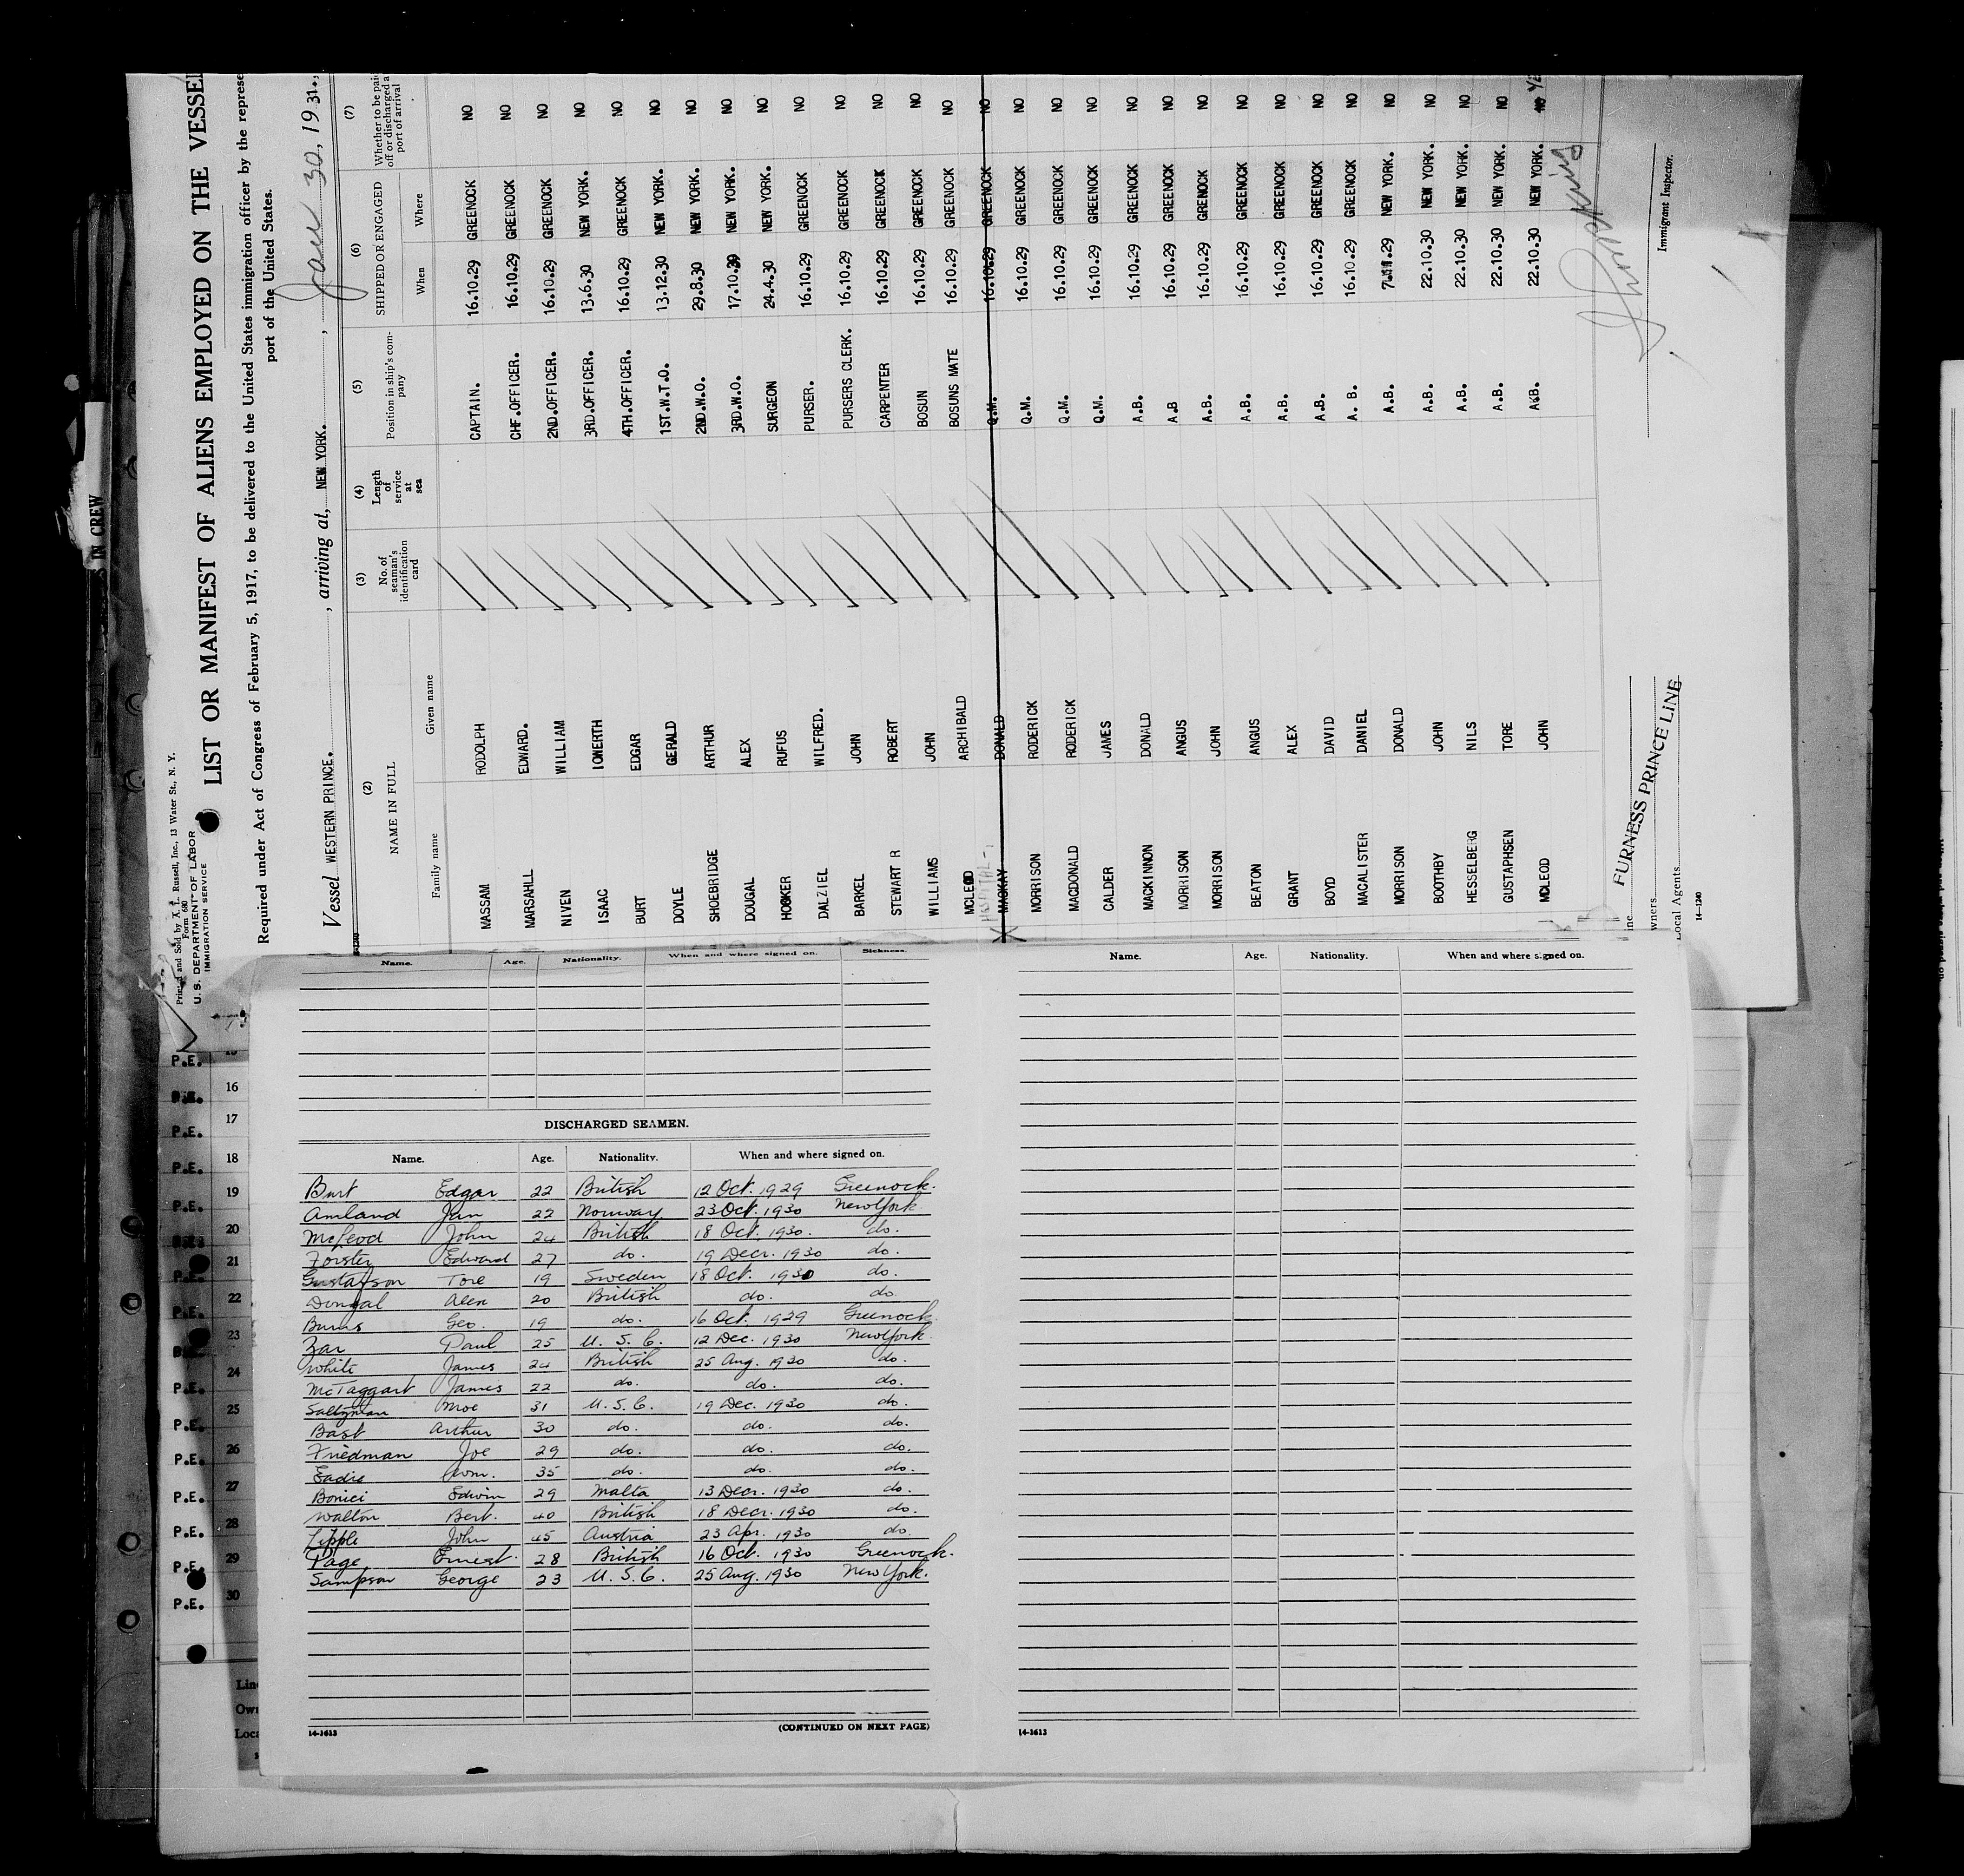 Printed and Sold by A. L. Russell, Inc., 13 Water St., N. Y.
Form 680
U. S. DEPARTMENT OF LABOR
IMMIGRATION SERVICE
LIST OR MANIFEST OF ALIENS EMPLOYED ON THE VESSEL
Required under Act of Congress of February 5, 1917, to be delivered to the United States immigration officer by the represe
port of the United States.
Vessel WESTERN PRINCE. , arriving at, NEW YORK. , Jan 30, 1931.,
(2) (3) (4) (5) (6) (7)
NAME IN FULL No. of seaman's identification card Length of service at sea Position in ship's company SHIPPED OR ENGAGED Whether to be paid off or discharged at port of arrival
Family name Given name When Where
MASSAM RODOLPH CAPTAIN. 16.10.29 GREENOCK NO
MARSAHLL EDWARD. CHF.OFFICER. 16.10.29 GREENOCK NO
NIVEN WILLIAM 2ND.OFFICER. 16.10.29 GREENOCK NO
ISAAC IOWERTH 3RD.OFFICER. 13.6.30 NEW YORK. NO
BURT EDGAR 4TH.OFFICER. 16.10.29 GREENOCK NO
DOYLE GERALD 1ST.W.T.O. 13.12.30 NEW YORK. NO
SHOEBRIDGE ARTHUR 2ND.W.O. 29.8.30 NEW YORK. NO
DOUGAL ALEX 3RD.W.O. 17.10.30 NEW YORK. NO
HOOKER RUFUS SURGEON 24.4.30 NEW YORK. NO
DALZIEL WILFRED. PURSER. 16.10.29 GREENOCK NO
BARKEL JOHN PURSERS CLERK. 16.10.29 GREENOCK NO
STEWART R ROBERT CARPENTER 16.10.29 GREENOCK NO
WILLIAMS JOHN BOSUN 16.10.29 GREENOCK NO
MCLEOD ARCHIBALD BOSUNS MATE 16.10.29 GREENOCK NO
MACKAY DONALD Q.M. 16.10.29 GREENOCK NO
MORRISON RODERICK Q.M. 16.10.29 GREENOCK NO
MACDONALD RODERICK Q.M. 16.10.29 GREENOCK NO
CALDER JAMES Q.M. 16.10.29 GREENOCK NO
MACKINNON DONALD A.B. 16.10.29 GREENOCK NO
MORRISON ANGUS A.B 16.10.29 GREENOCK NO
MORRISON JOHN A.B. 16.10.29 GRENOCK NO
BEATON ANGUS A.B. 16.10.29 GREENOCK NO
GRANT ALEX A.B. 16.10.29 GREENOCK NO
BOYD DAVID A.B. 16.10.29 GREENOCK NO
MACALISTER DANIEL A. B. 16.10.29 GREENOCK NO
MORRISON DONALD A.B. 7.11.29 NEW YORK. NO
BOOTHBY JOHN A.B. 22.10.30 NEW YORK. NO
HESSELBERG NILS A.B. 22.10.30 NEW YORK. NO
GUSTAPHSEN TORE A.B. 22.10.30 NEW YORK. NO
MCLEOD JOHN A.B. 22.10.30 NEW YORK. NO
FURNESS PRINCE LINE
Immigrant Inspector.
wners
Local Agents
14-1240
S IN CREW
Name. Age. Nationality. When and where signed on. Sickness.
Name. Age. Nationality. When and where signed on.
DISCHARGED SEAMEN.
Name. Age. Nationality. When and where signed on.
Burt Edgar 22 British 12 Oct. 1929 Greenock.
Amland Jan 22 Norway 23 Oct. 1930 New York
McLeod John 24 British 18 Oct. 1930. do.
Forster Edward 27 do. 19 Decr. 1930 do.
Gustafson Tore 19 Sweden 18 Oct. 1930 do.
Dougal Alex 20 British do. do.
Burns Geo. 19 do. 16 Oct. 1929 Greenock
Zar Paul 25 U. S. C. 12 Dec. 1930 New York.
White James 24 British 25 Aug. 1930 do.
McTaggart James 22 do. do. do.
Saltzman Moe 31 U. S. C. 19 Dec. 1930 do.
Bast Arthur 30 do. do. do.
Friedman Joe 29 do. do. do.
Eadie Wm. 35 do. do. do.
Bonici Edwin 29 Malta 13 Decr. 1930 do.
Walton Bert. 40 British 18 Decr. 1930 do.
Lipple John 45 Austria 23 Apr. 1930 do
Page Ernest. 28 British 16 Oct. 1930 Greenock.
Sampson George 23 U. S. C. 25 Aug. 1930 New York.
14-1613 (CONTINUED ON NEXT PAGE)
14-1613
P.E. 16
17
P.E.
P.E. 18
19
P.E.
20
21
P.E.
22
P.E.
23
24
P.E.
25
P.E.
26
P.E.
27
P.E.
28
P.E.
29
P.E.
30
P.E.
Line
Own
Loca